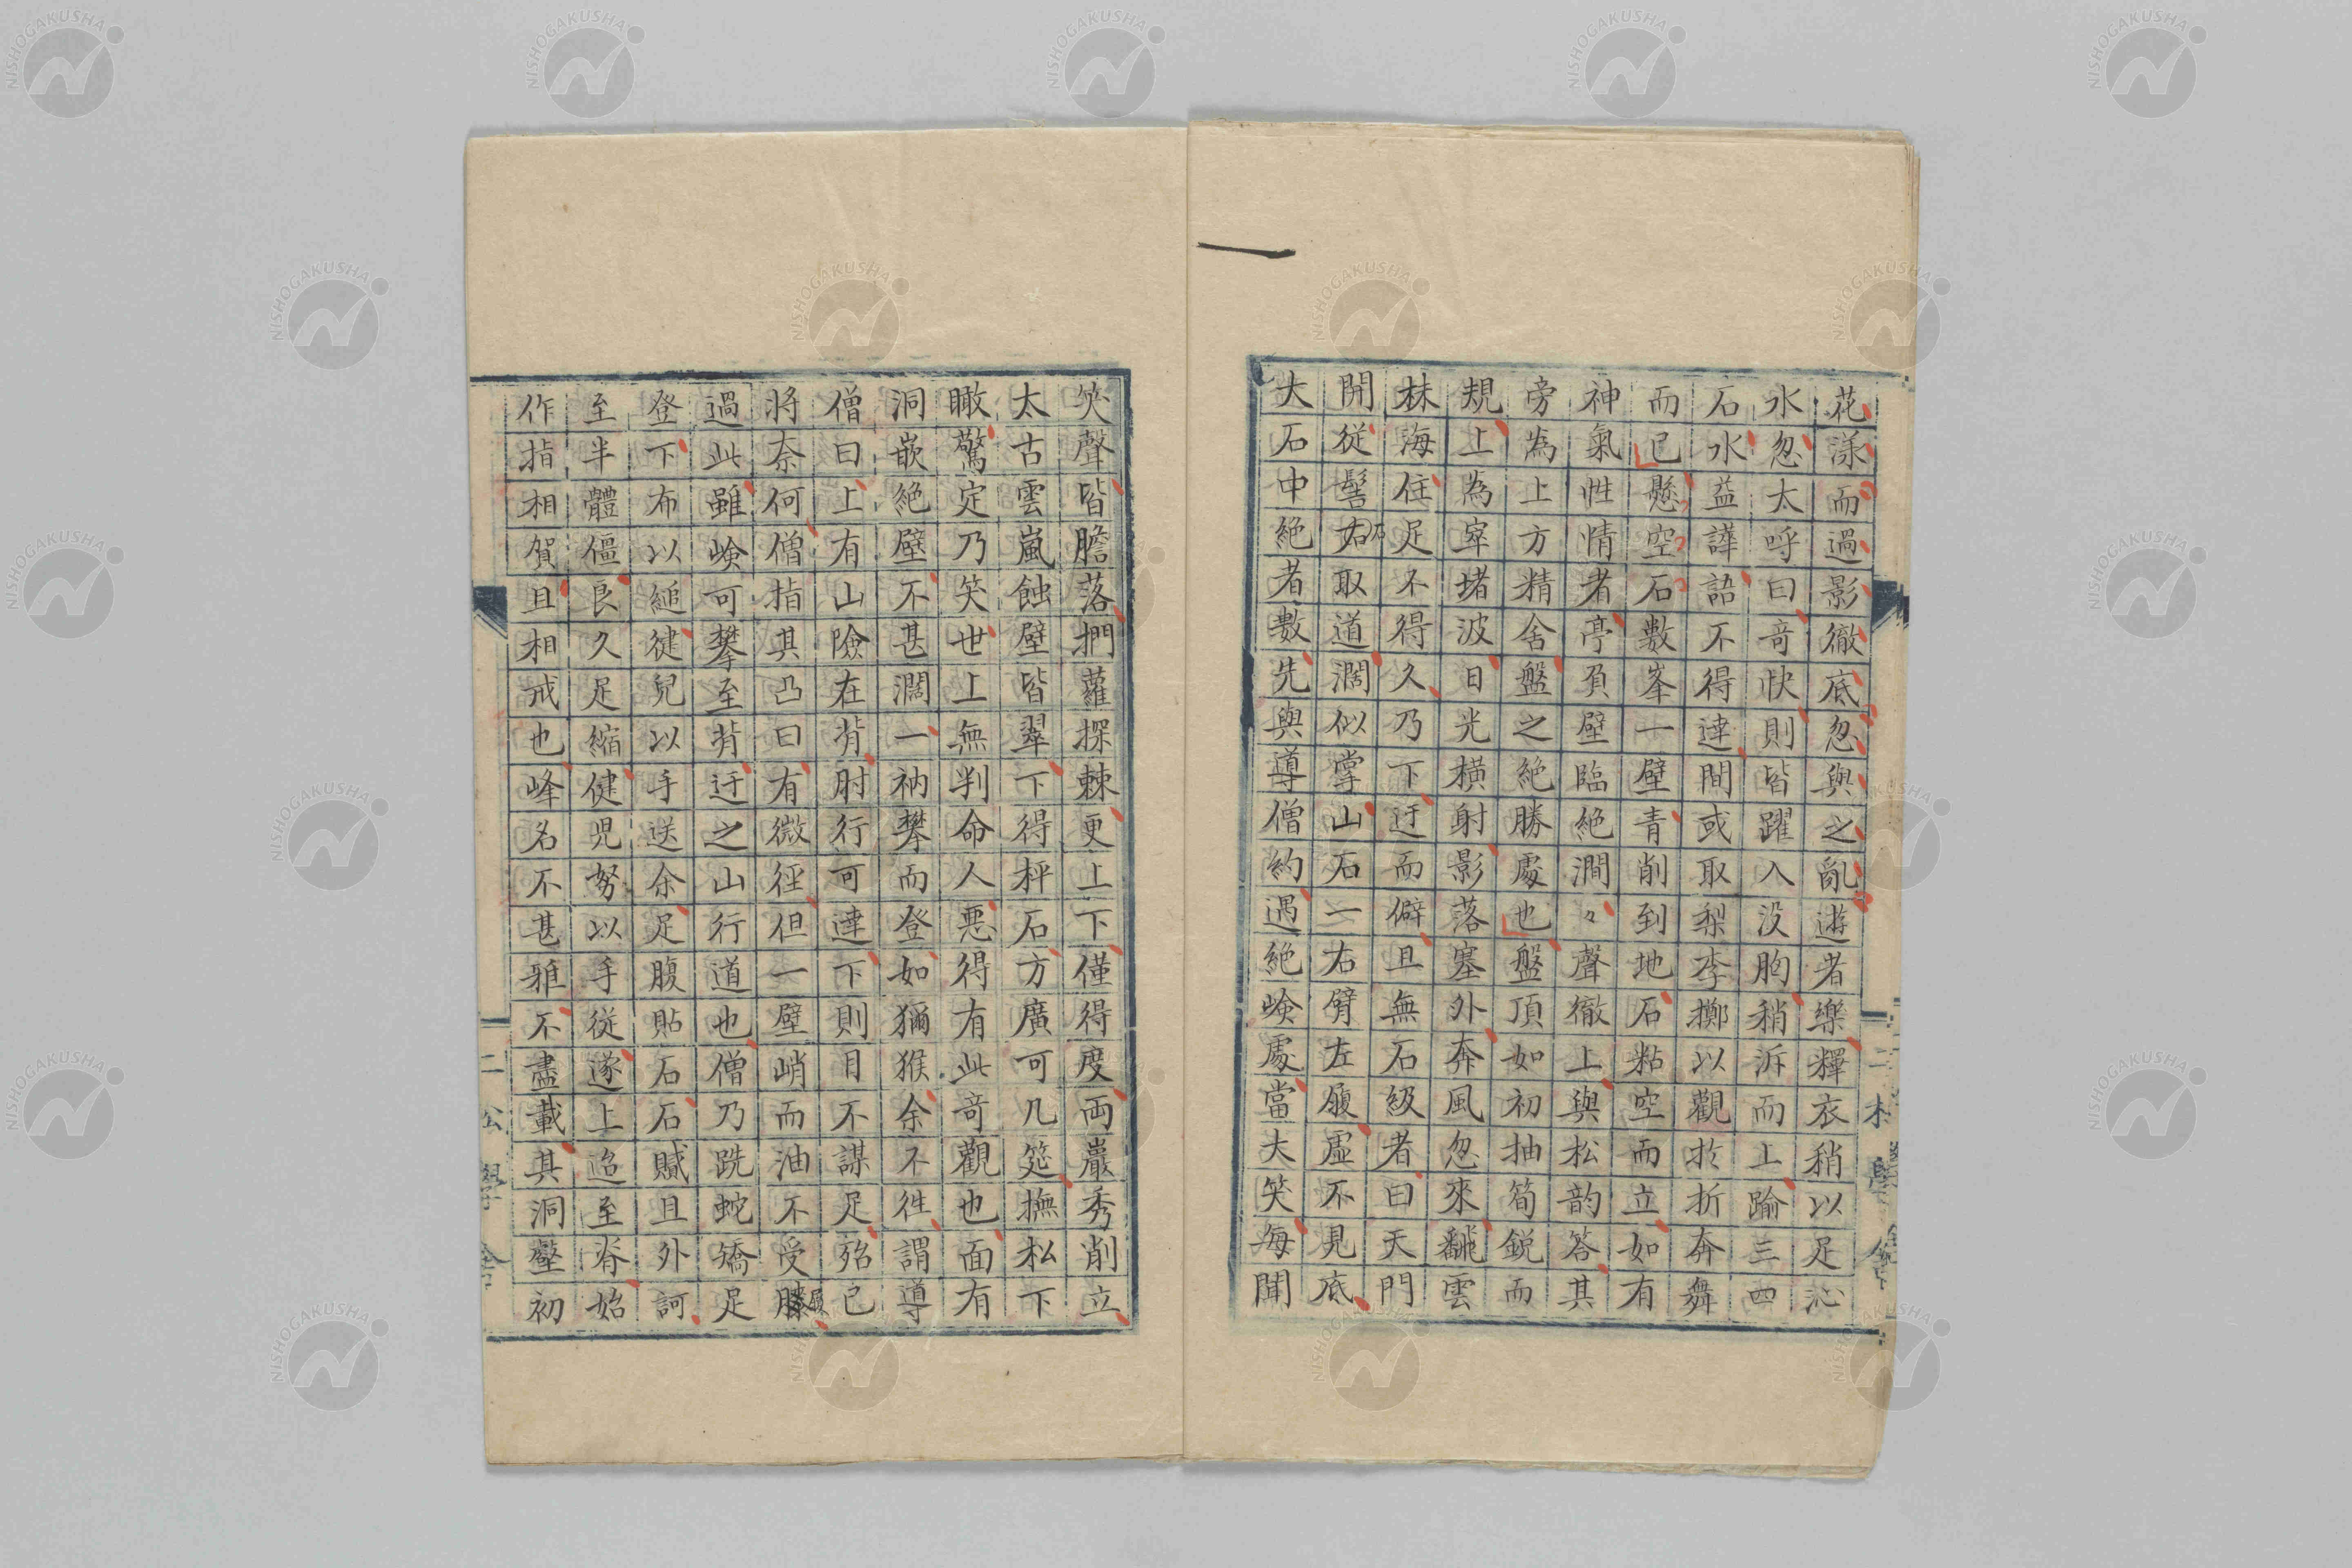 一
花漾而過影徹底忽與之亂遊者樂釋衣稍以足沁
水忽太呼曰奇快則皆躍入没胸稍泝而上踰三四
石水益譁語不得達間或取梨李擲以觀於折奔舞
而已懸空石數峯一壁青削到地石粘空而立如有
神氣性情者亭負壁臨絶澗々聲徹上與松韵答其
旁為上方精舍盤之絶勝處也盤頂如初抽筍鋭而
規上為窣堵波日光横射影落塞外奔風忽來翻雲
抹海住足不得久乃下迂而僻且無石級者曰天門
開從髻石取道濶似掌山石一右臂左履虛不見底
大石中絶者數先與導僧約遇絶嶮處當大笑每聞
笑聲皆膽落捫蘿探棘更上下僅得度両巖秀削立
太古雲嵐蝕壁皆翠下得枰石方廣可几筵撫松下
瞰驚定乃笑世上無判命人惡得有此奇觀也面有
洞嵌絶壁不甚濶一衲攀而登如獼猴余不往謂導
僧曰上有山險在背肘行可達下則目不謀足殆已
將奈何僧指其凸曰有微徑但一壁峭而油不受履
過此雖嶮可攀至背迂之山行道也僧乃跣蛇矯足
登下布以縋健兒以手送余足腹貼石石膩且外訶
至半體僵良久足縮健児努以手從遂上迨至脊始
作指相賀且相戒也峰名不甚雅不盡載其洞壑初
二松學舍
二松學舍
NISHOGAKUSHA